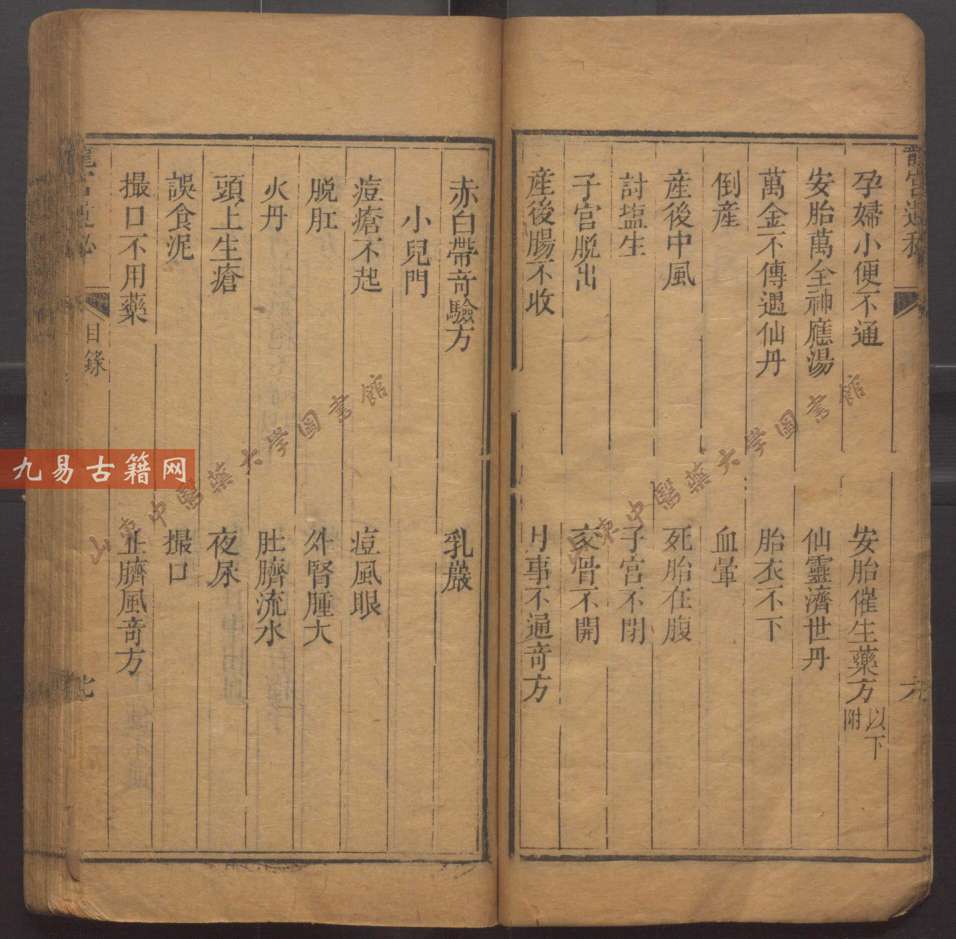 孕婦小便不通
安胎催生藥方以下附
安胎萬全神應湯
仙靈濟世丹
萬金不傳遇仙丹
胎衣不下
倒產
血暈
產後中風
死胎在腹
討塩生
子宮不閉
子宮脫出
交骨不開
產後腸不收
月事不通奇方
六
赤白帶奇驗方
乳巖
小兒門
痘瘡不起
痘風眼
脫肛
外腎腫大
火丹
肚臍流水
頭上生瘡
夜尿
誤食泥
撮口
撮口不用藥
止臍風奇方
目錄
七
九易古籍网
中醫藥大学图书馆
中醫藥大学图书馆